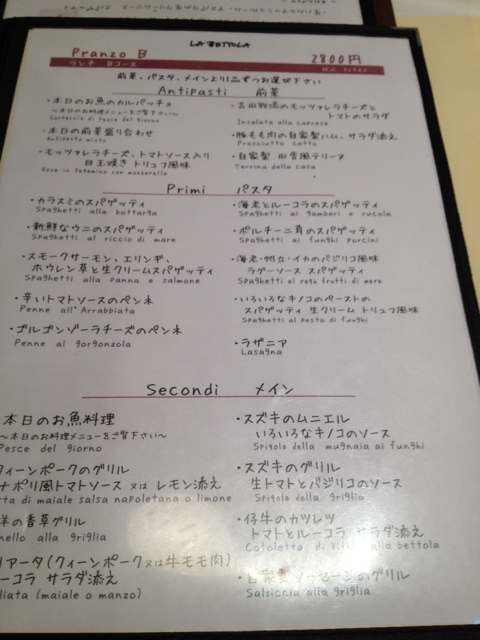 LA BETTOLA
Pranzo B 2800円
ランチ Bコース
前菜、パスタ、メインより1品ずつお選び下さい
Antipasti 前菜
・本日のお魚のカルパッチョ
～本日のお料理メニューをご覧下さい～
Carpaccio di pesce del giorno
・本日の前菜盛り合わせ
Antipasto misto
・モッツァレラチーズ、トマトソース入り
目玉焼き トリュフ風味
Uova in tegamino con mozzarella
・吉田牧場のモッツァレラチーズと
トマトのサラダ
Insalata alla caprese
・豚モモ肉の自家製ハム、サラダ添え
Prosciutto cotto
・自家製 田舎風テリーヌ
Terrina della casa
Primi パスタ
・カラスミのスパゲッティ
Spaghetti alla bottarga
・新鮮なウニのスパゲッティ
Spaghetti al riccio di mare
・スモークサーモン、エリンギ、
ホウレン草と生クリームスパゲッティ
Spaghetti alla panna e salmone
・辛いトマトソースのペンネ
Penne all' Arrabbiata
・ゴルゴンゾーラチーズのペンネ
Penne al gorgonzola
・海老とルーコラのスパゲッティ
Spaghetti ai gamberi e rucola
・ポルチーニ茸のスパゲッティ
Spaghetti ai funghi porcini
・海老・帆立・イカのバジリコ風味
ラグーソース スパゲッティ
Spaghetti al ragu frutti di mare
・いろいろなキノコのペーストの
スパゲッティ 生クリーム トリュフ風味
Spaghetti al pesto di funghi
・ラザニア
Lasagna
Secondi メイン
本日のお魚料理
～本日のお料理メニューをご覧下さい～
Pesce del giorno
クィーンポークのグリル
ナポリ風トマトソース 又は レモン添え
tta di maiale salsa napoletana o limone
羊の香草グリル
nello alla griglia
リアータ(クィーンポーク又は牛モモ肉)
ーコラ サラダ添え
liata (maiale o manzo)
・スズキのムニエル
いろいろなキノコのソース
Spigola della mugnaia ai funghi
・スズキのグリル
生トマトとバジリコのソース
Spigola della griglia
・仔牛のカツレツ
トマトとルーコラ サラダ添え
Cotoletta di alla bettola
・自家製ソーセージのグリル
Salsiccia alla griglia